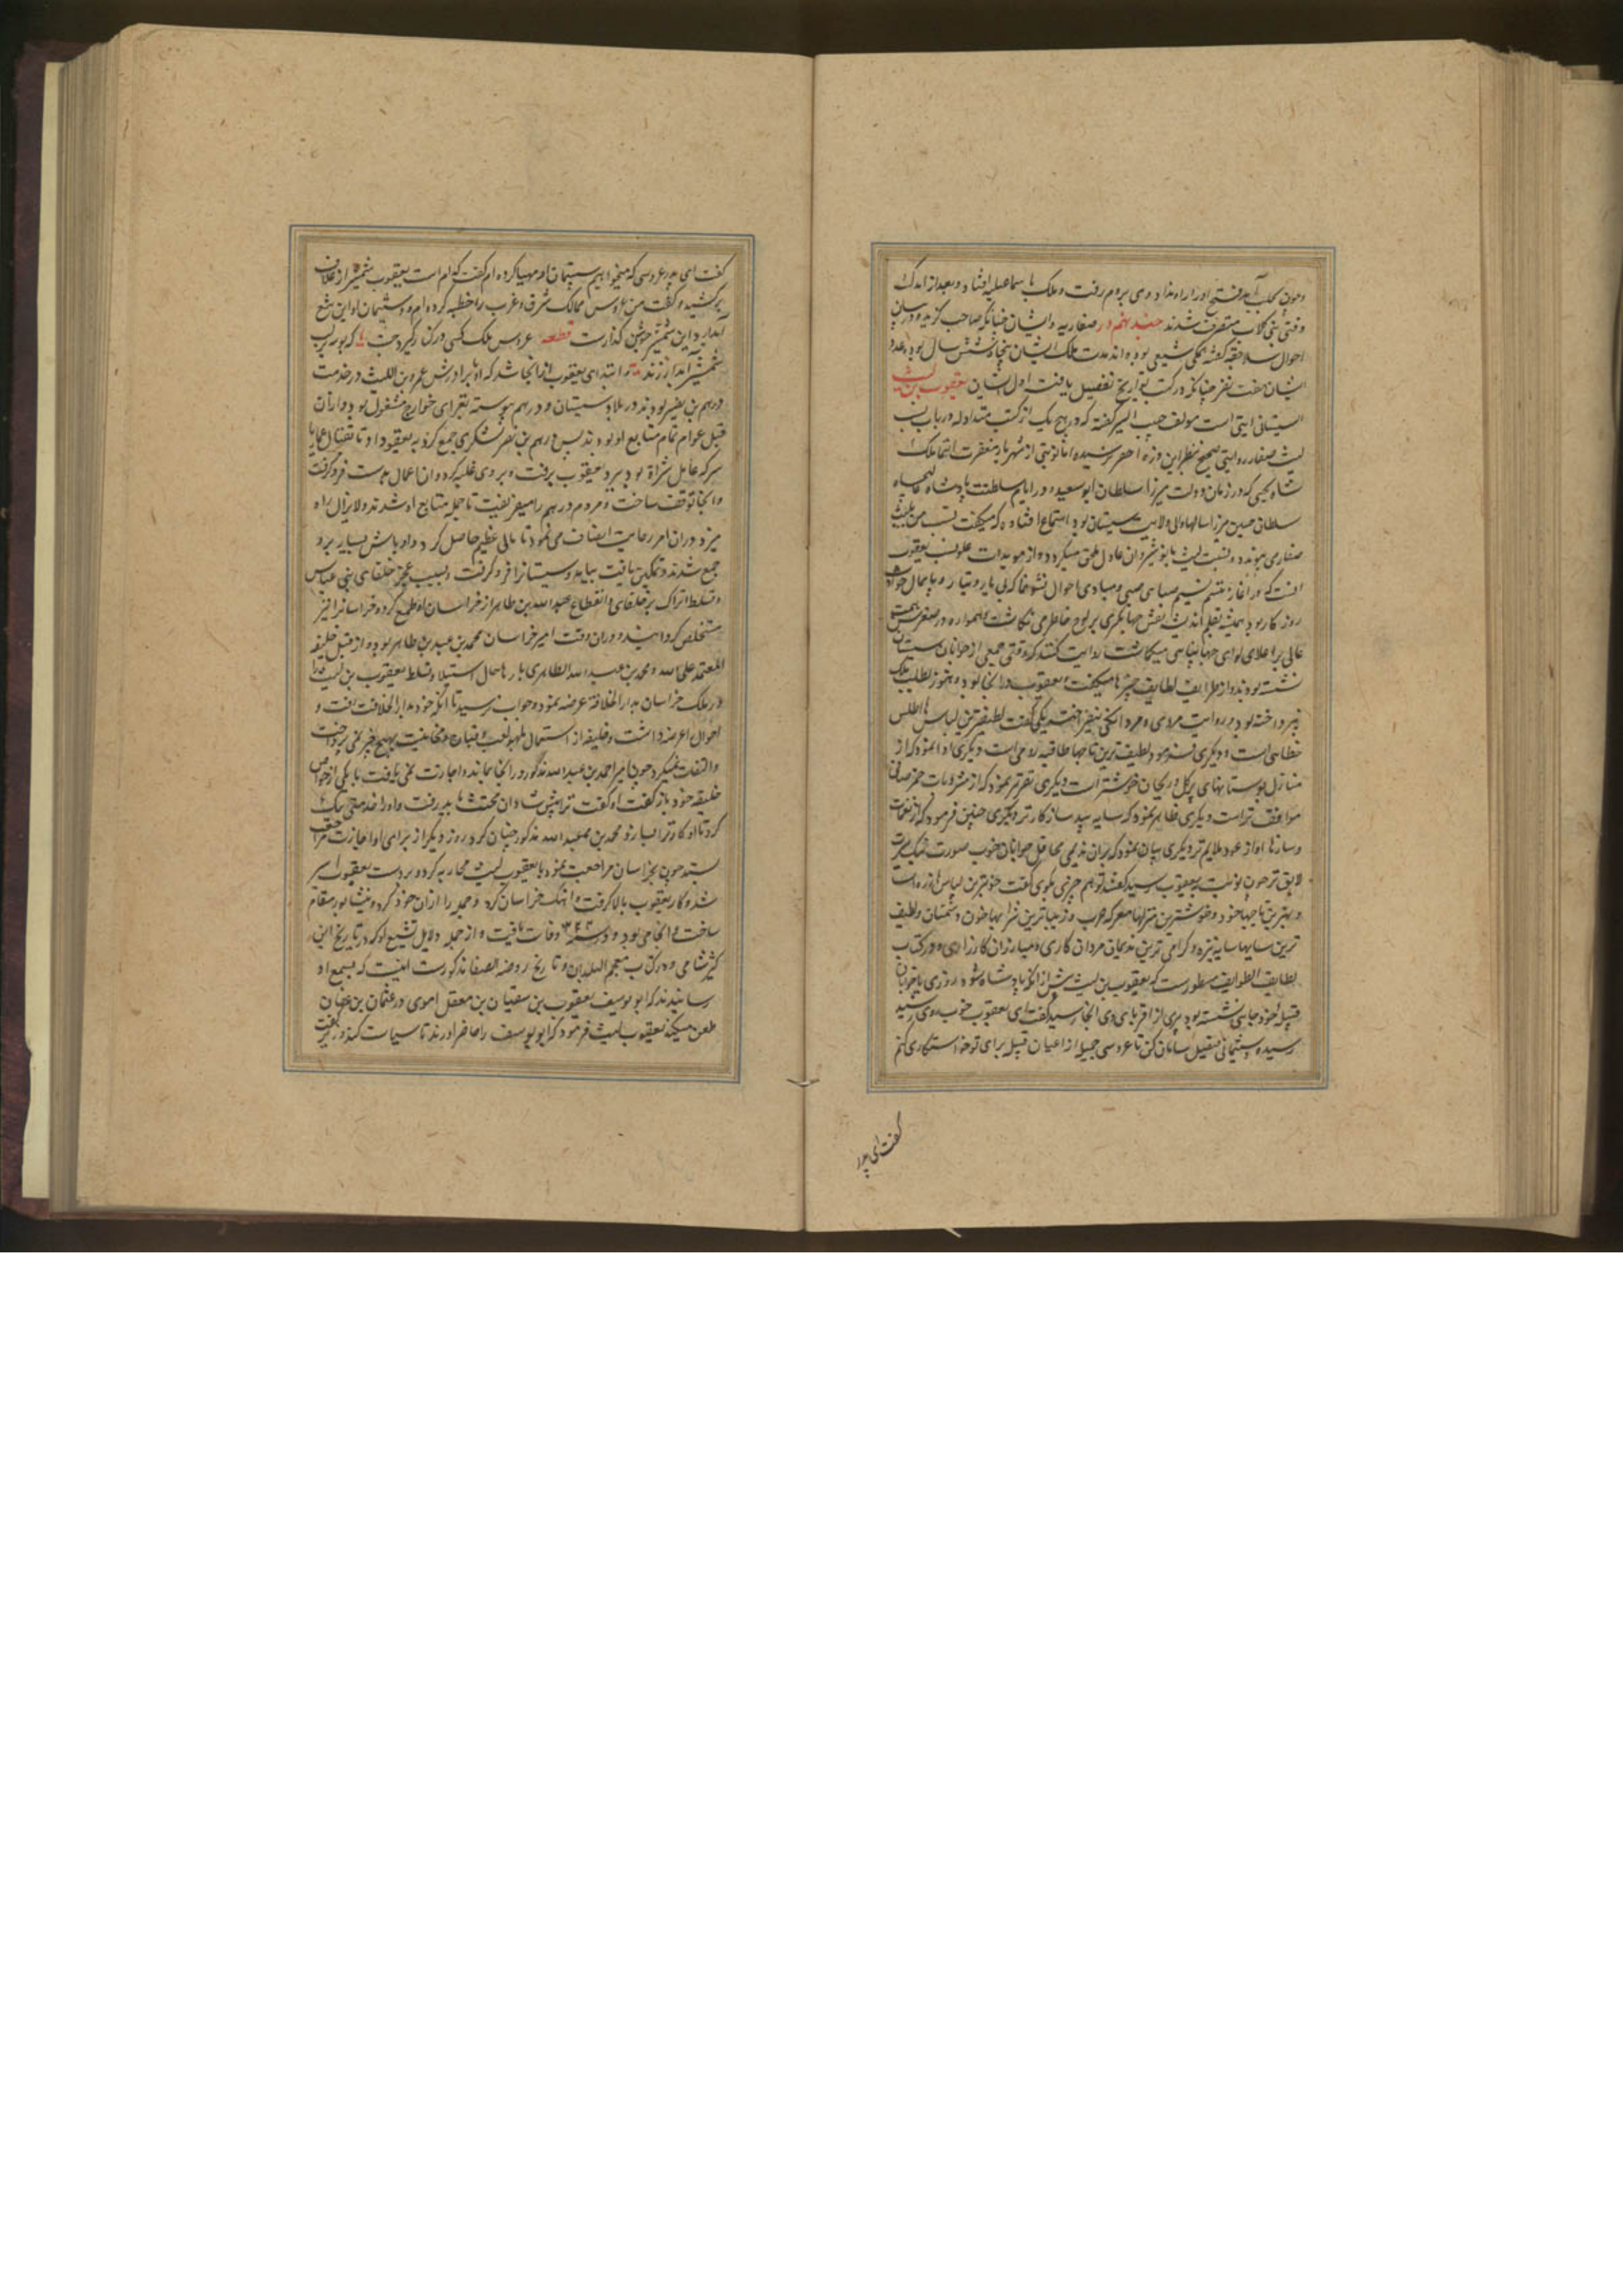 و چون بحلب آمد فتح او را راه نداد وی بروم رفت و ملک با سماعیلیه افتاد و بعد از اندک
وقتی بنی کلاب متصرف شدند جند پنجم در صفاریه و ایشان چنانکه صاحب گزیده در بیان
احوال سلاجقه گفته همگی شیعی بوده‌اند مدت ملک ایشان پنجاه و شش سال بود و عدد
ایشان هفت نفر چنانکه در کتب تواریخ تفصیل یافت اول ایشان یعقوب بن لیث
السیستانی است مولف حبیب السیر گفته که در هیچ یک از کتب متداوله در باب نسب
لیث صفار روایتی صحیح بنظر این ذره احقر نرسیده اما نوبتی از شهریار مغفرت انتما ملک
شاه یحیی که در زمان دولت میرزا سلطان ابوسعید و در ایام سلطنت پادشاه عالیجاه
سلطان حسین میرزا سالها والی ولایت سیستان بود استماع افتاده که میگفت نسب من بلیث
صفار می پیوندد و نسبت لیث بانوشیروان عادل ملحق میگردد و از مویدات علو نسب یعقوب
آنست که در آغاز تنسم نسیم صبا صبی و مبادی احوال نشو و نما که بی یار و تبار و پایمال حوادث
روزگار بود همیشه بقلم اندیشه نقش جهانگیری بر لوح خاطر می نگاشت و همواره در صغر سن همت
عالی بر اعلای لوای جهانبانی میگماشت روایت کنند که وقتی جمعی از جوانان سیستان
نشسته بودند و از طرایف لطایف چیزها میگفتند و یعقوب در آنجا بود و هنوز بطلب ملک
نپرداخته بود و رایت مردی و مردانگی نیفراخته یکی گفت لطیفترین لباسها اطلس
خطایی است و دیگری فرمود لطیفترین تاجها طاقیه رومی است و دیگری ادا نمود که از
منازل بوستانهای پر گل و ریحان خوشتر است دیگری تقریر نمود که از مشروبات خمر صافی
موافق تر است و دیگری ظاهر نمود که سایه بید سازگارتر و دیگری چنین فرمود که از نغمات
و سازها آواز عود ملایم تر دیگری بیان نمود که برای ندیمی محافل جوانان خوب صورت نیک سیرت
لایق تر چون نوبت بیعقوب رسید گفتند تو هم چیزی بگوی گفت خوبترین لباسها زره است
و بهترین تاجها خود و خوشترین منزلها معرکه حرب و زیباترین شرابها خون دشمنان و لطیف
ترین سایها سایه نیزه و گرامی ترین ندیمان مردان کاری و مبارزان کارزاری و در کتاب
لطایف الطوایف مسطور است که یعقوب بن لیث پیش از آنکه پادشاه شود روزی با جوانان
قبیله خود جایی نشسته بود پیری از اقربای وی آنجا رسید گفت ای یعقوب خوب روی رسید
رسیده دستپیمانی ثقیل سامان کن تا عروسی جمیله از اعیان قبیله برای تو خواستگاری کنم
گفت ای پدر
گفت ای پدر عروسی که میخواهیم دستپیمان او مهیا کرده ام گفت کدام است یعقوب شمشیر از غلاف
برکشید و گفت من عروس ممالک شرق و غرب را خطبه کرده ام و دستپیمان او این تیغ
آبدار و این شمشیر جوشن گذار است قطعه عروس ملک کسی در کنار گیرد چست که بوسه بر لب
شمشیر آبدار زند و ابتدای یعقوب از آنجا شد که او و برادرش عمرو بن اللیث در خدمت
درهم بن نصر بودند در بلاد سیستان و درهم پیوسته بغزای خوارج مشغول بود و از آن
قبل عوام تمام متابع او بودند پس درهم بن نصر لشکری جمع کرد و به یعقوب داد تا بقتال عمار
سرکه عامل شراة بود ببرد یعقوب برفت و بر وی غلبه کرد و آن اعمال بدست فرو گرفت
و آنجا توقف ساخت و مردم درهم را میفریفت تا جمله متابع او شدند و لایزال راه
میزد و در آن امر رعایت انصاف می نمود تا مالی عظیم حاصل کرد و اوباش بسیار برو
جمع شدند و تمکین یافت بیامد و سیستان را فرو گرفت و بسبب عجز خلفای بنی عباس
و تسلط اتراک بر خلفای و انقطاع عبدالله بن طاهر از خراسان او طمع کرد و خراسان را نیز
مستخلص گردانید و در آن وقت امیر خراسان محمد بن عبدالله بن طاهر بود و از قبل خلیفه
المعتمد علی الله و محمد بن عبدالله الطاهری بارها حال استیلا و تسلط یعقوب بن لیث را
در ملک خراسان بدار الخلافة عرضه نمود و جواب نرسید تا آنکه خود بدار الخلافت رفت و
احوال عرضه داشت و خلیفه از اشتغال بلهو و لعب و قیان و مخانیث بهیچ خبر نمی پرداخت
و التفات نمیکرد چون امیر احمد بن عبدالله مذکور در آنجا بماند و اجازت نمی یافت با یکی از خواص
خلیفه خود باز گفت او گفت ترا پیش شادان مخنث باید رفت و او را خدمتی نیک
کرد تا او کار ترا بسازد محمد بن عبدالله مذکور چنان کرد روز دیگر از برای او اجازت مراجعت
ستد چون بخراسان مراجعت نمود با یعقوب لیث محاربه کرد و بر دست یعقوب اسیر
شد و کار یعقوب بالا گرفت و آهنگ خراسان کرد و همه را از آن خود کرد و نیشابور مقام
ساخت و آنجا می بود و در سنه ۲۴۳ وفات یافت و از جمله دلایل تشیع او که در تاریخ ابن
کثیر شامی و در کتاب معجم البلدان و تاریخ روضة الصفا مذکور است اینست که بسمع او
رسانیدند که ابو یوسف یعقوب بن سفیان بن معقل اموی در عثمان بن عفان
طعن میکند یعقوب لیث فرمود که ابو یوسف را حاضر آورند تا سیاست کند وزیر گفت